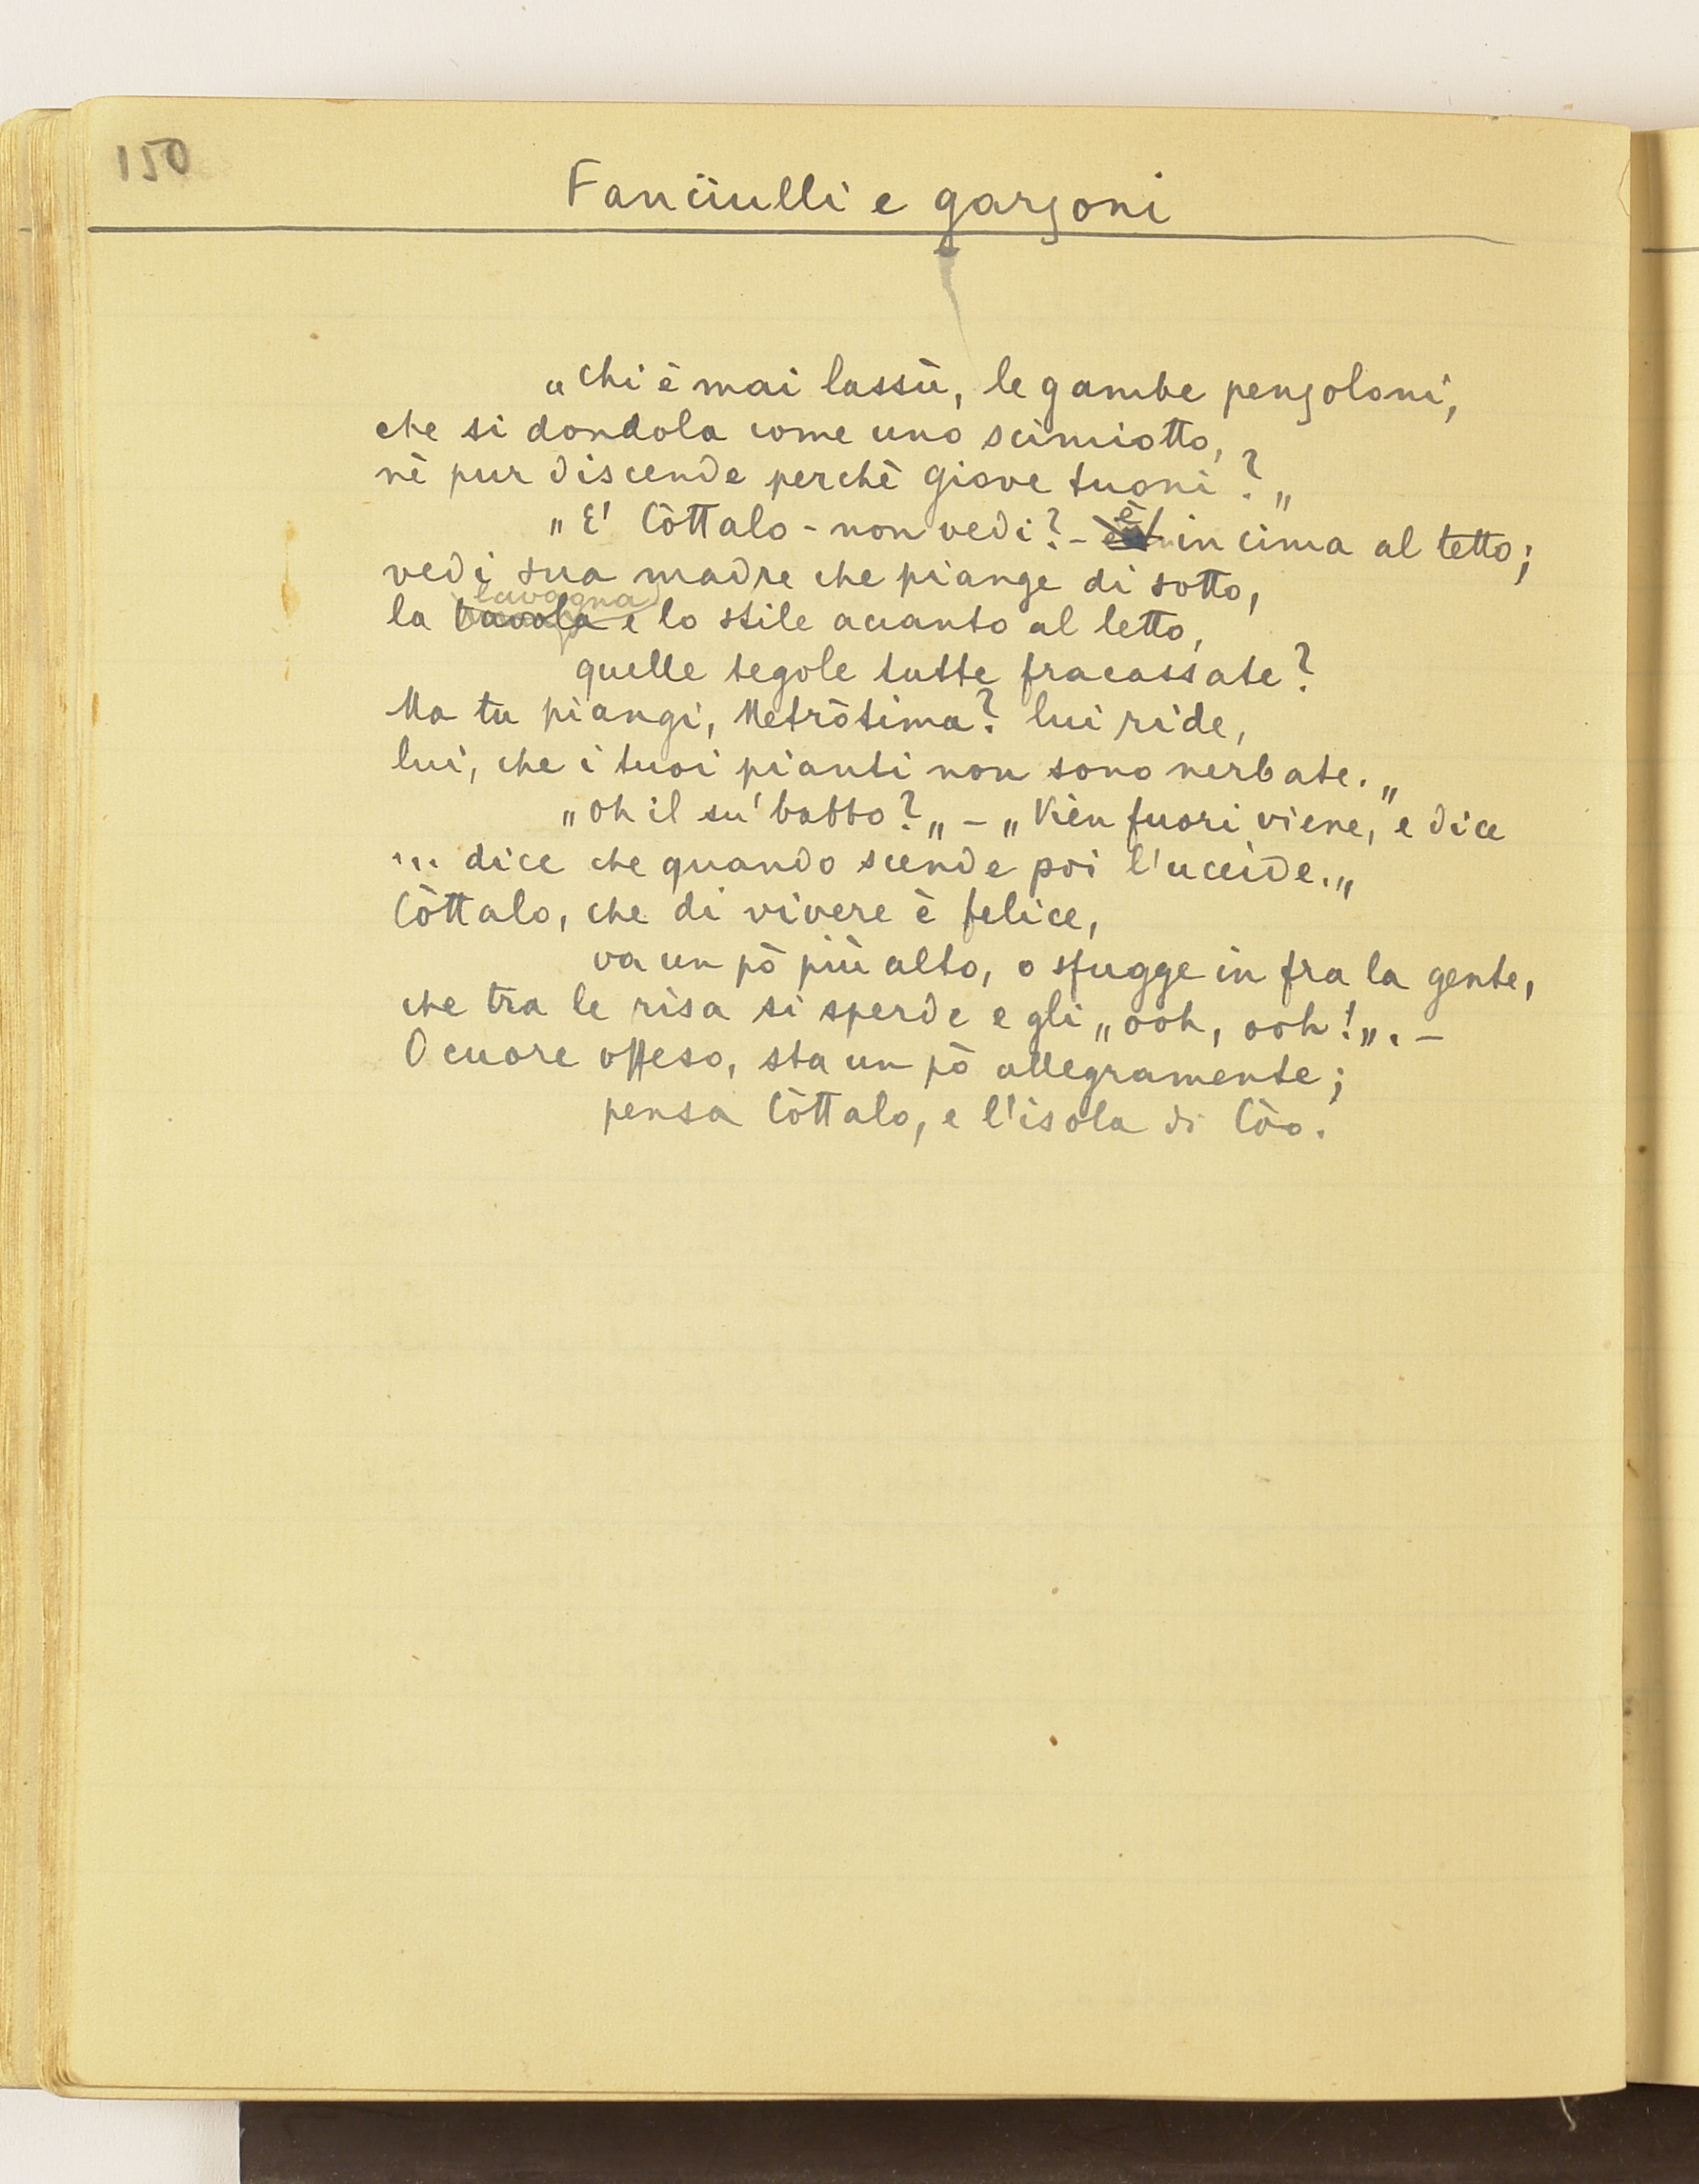 150
Fanciulli e garzoni
„Chi è mai lassù, le gambe penzoloni,
che si dondola come uno scimiotto,
nè pur discende perchè Giove tuoni?„
„E' Còttalo - non vedi? - è in cima al tetto;
vedi sua madre che piange di sotto,
lavagna
la tavola e lo stile accanto al letto,
quelle tegole tutte fracassate?
Ma tu piangi, Metròtima? lui ride,
lui, che i tuoi pianti non sono nerbate.„
„Oh il su' babbo?„ - „Vièn fuori viene, e dice
... dice che quando scende poi l'uccide.„
Còttalo, che di vivere è felice,
va un pò più alto, o sfugge in fra la gente,
che tra le risa si sperde e gli „ooh, ooh!„. -
O cuore offeso, sta un pò allegramente;
pensa Còttalo, e l'isola di Còo.